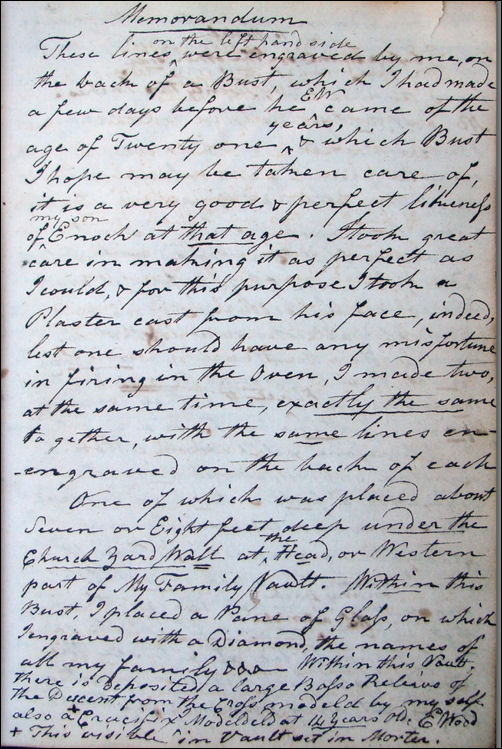 Memorandum
on the left hand side
These lines ^ were engraved by me, on
the back of a Bust, which I had made
a few days before he EW came of the
age of Twenty one years, & which Bust
I hope may be taken care of,
it is a very good & perfect likeness
my son
of ^ Enoch at that age. I took great
care in making it as perfect as
I could, & for this purpose I took a
Plaster cast from his face, indeed,
lest one should have any misfortune
in firing in the Oven, I made two,
at the same time, exactly the same
together, with the same lines en-
-engraved on the back of each
One of which was placed about
Seven or Eight feet deep under the
Church Yard Wall at the Head, or Western
part of My Family Vault. Within this
Bust, I placed a Pane of Glass, on which
I engraved with a Diamond, the names of
all my family &&& Within this Vault,
there is deposited a large Basso Relievo of
the Descent from the Cross modeld by my self
also a + Crucifix Modeld at 14 Years Old. E Wood
+ This visible in Vault set in Morter.